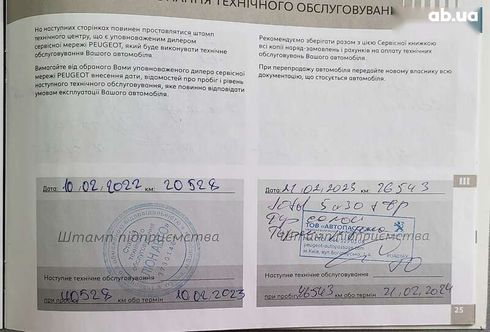 ТЕХНІЧНОГО ОБСЛУГОВУВАН
ab.ua
На наступних сторінках повинен проставлятися штамп
технічного центру, що є уповноваженим дилером
сервісної мережі PEUGEOT, який буде виконувати технічне
обслуговування Вашого автомобіля.
Вимагайте від обраного Вами уповноваженого дилера сервісної
мережі PEUGEOT внесення дати, відомостей про пробіг і рівень
наступного технічного обслуговування, яке повинно відповідати
умовам експлуатації Вашого автомобіля.
Рекомендуємо зберігати разом з цією Сервісної книжкою
всі копії наряд-замовлень і рахунків на оплату технічних
обслуговувань Вашого автомобіля.
При перепродажу автомобіля передайте новому власнику всю
документацію, що стосується автомобіля.
Дата 10.02.2022 км: 20528
Штамп підприємства
Наступне технічне обслуговування
при пробігу 40528 км або термін 10.02.2023
Дата 21.02.2023 км: 26543
5w30
ТОВ «АВТОПАСАЖ
Штамп підприємства
Наступне технічне обслуговування
при пробігу 46543 км або термін 21.02.2024
III
25